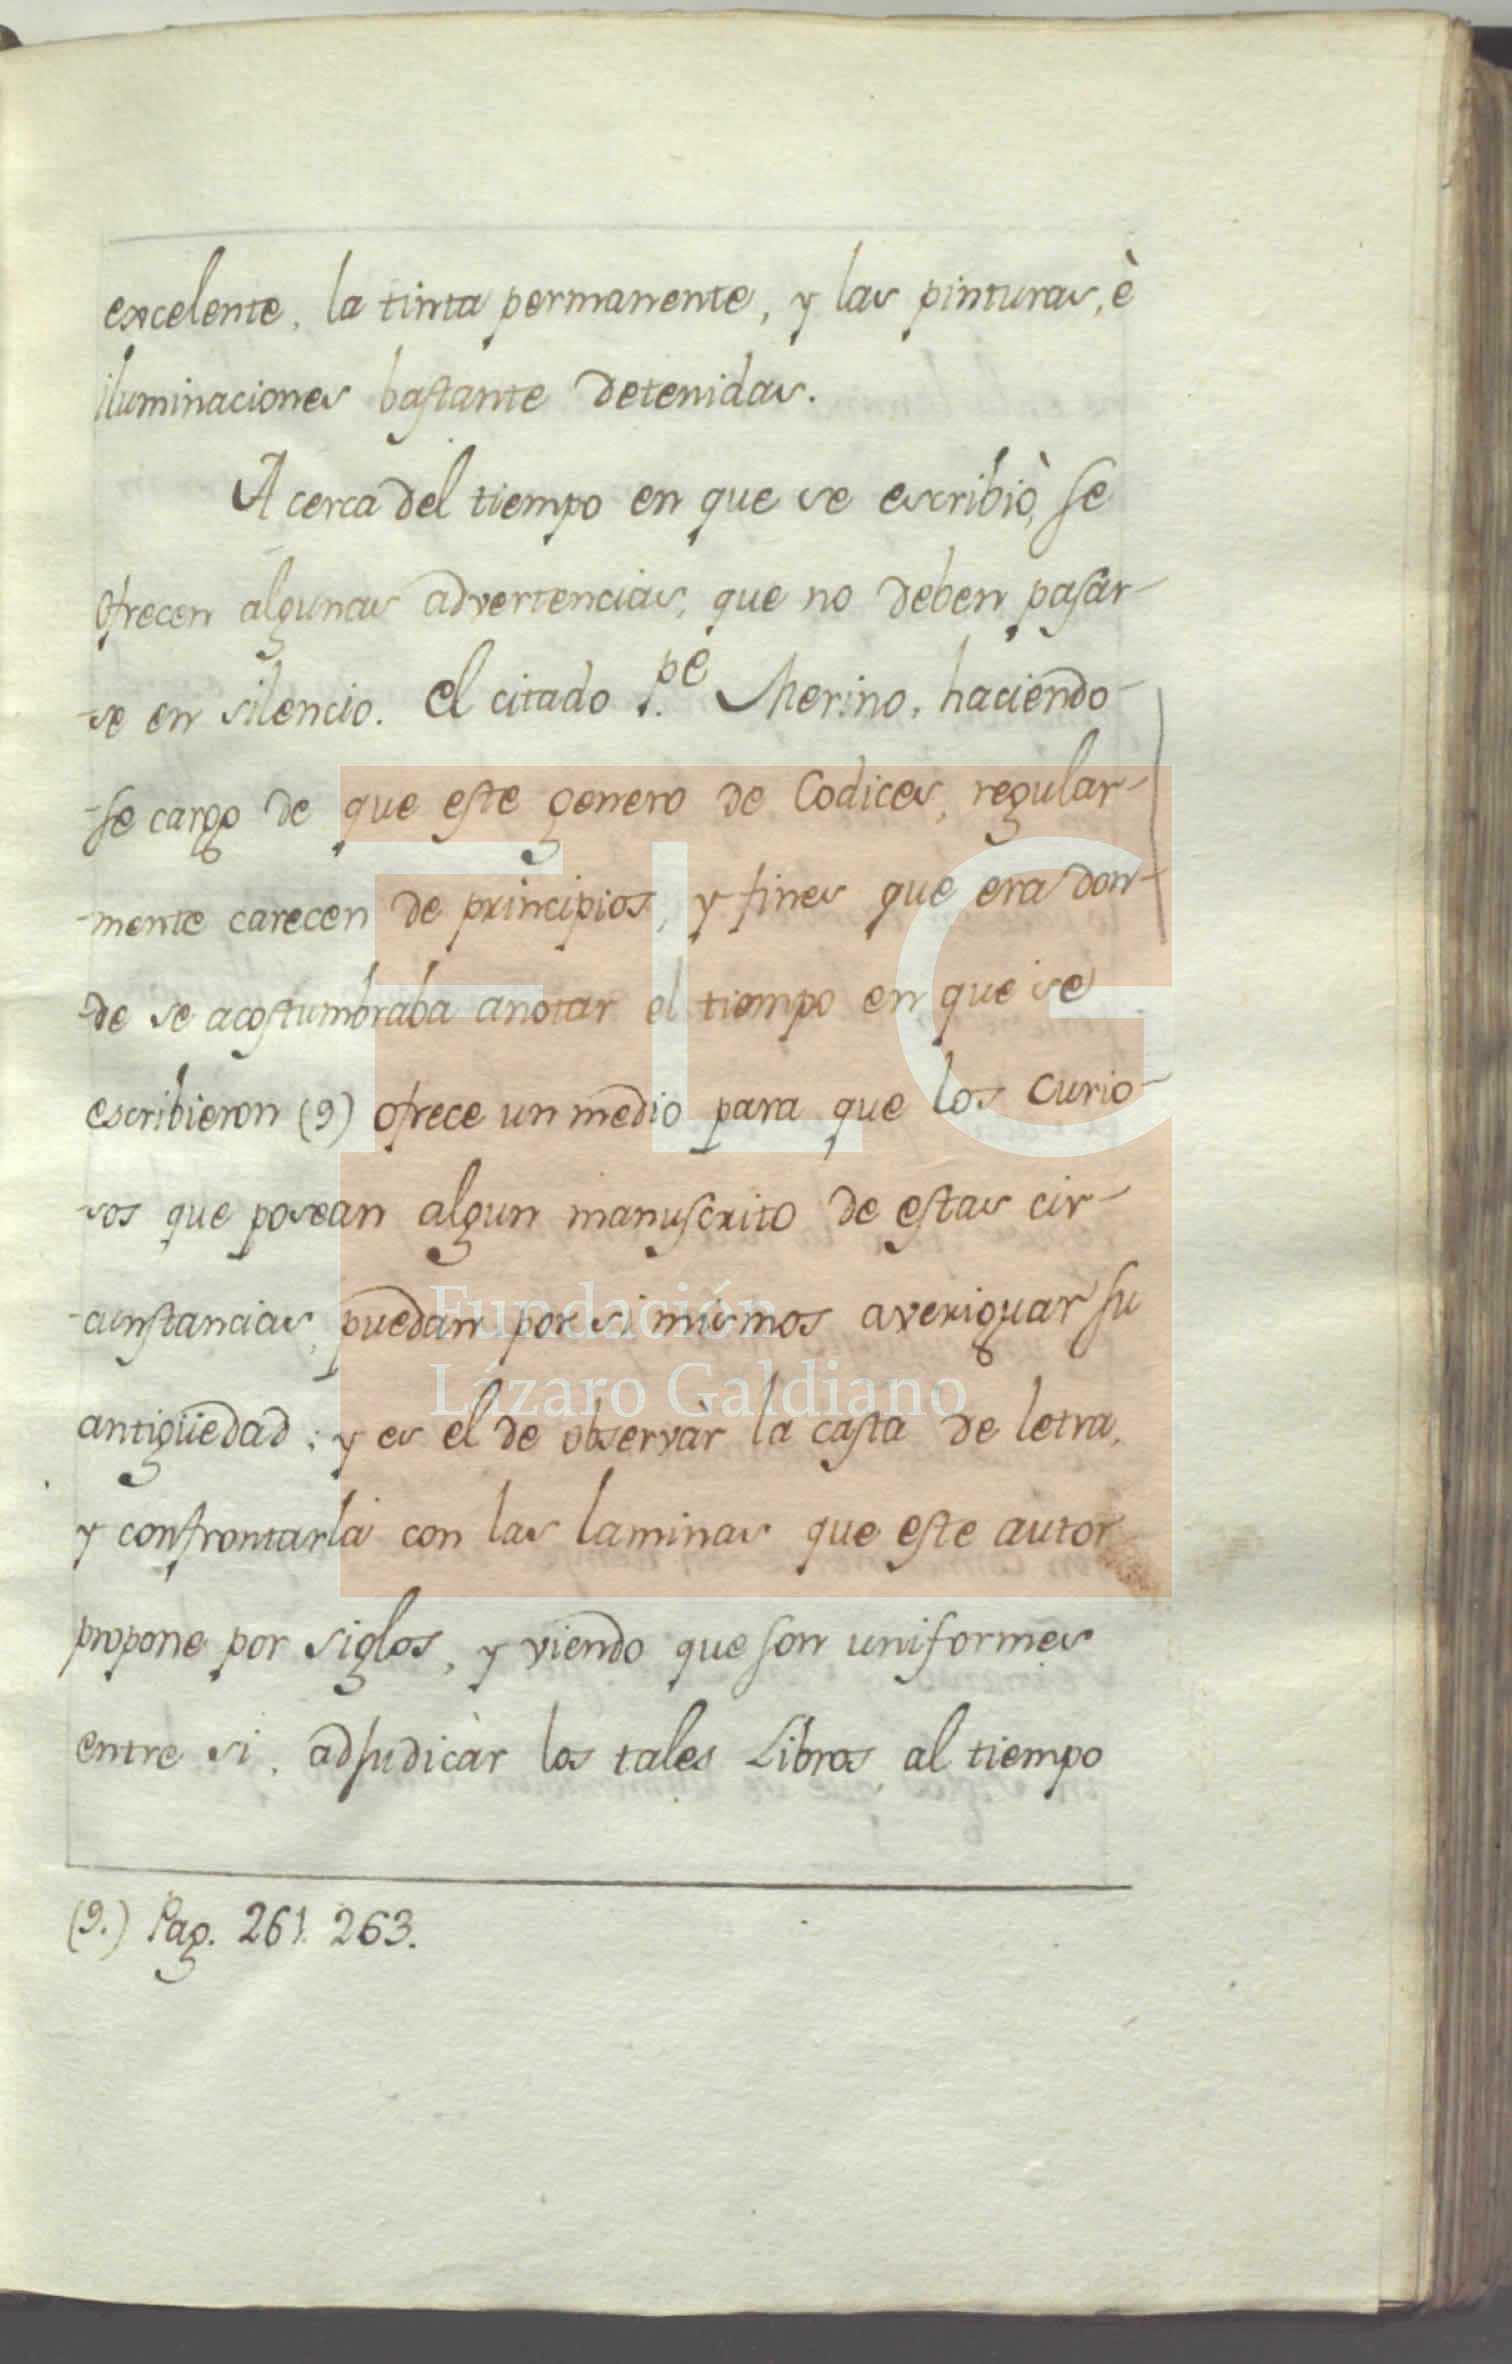 excelente, la tinta permanente, y las pinturas, è
iluminaciones bastante detenidas.
Acerca del tiempo en que se escribiò, se
ofrecen algunas advertencias, que no deben pasar-
-se en silencio. El citado P.pe Merino, haciendo-
-se cargo de que este genero de Codices, regular-
-mente carecen de principios, y fines que era don-
-de se acostumbraba anotar el tiempo en que se
escribieron (9) ofrece un medio para que los curio-
-sos que posean algun manuscrito de estas cir-
-cunstancias, puedan por si mismos averiguar su
antigüedad; y es el de observàr la casta de letra,
y confrontarla con las laminas que este autor
propone por siglos, y viendo que son uniformes
entre si, adjudicàr los tales Libros al tiempo
(9.) Pag. 261. 263.
FLG
Fundación
Lázaro Galdiano